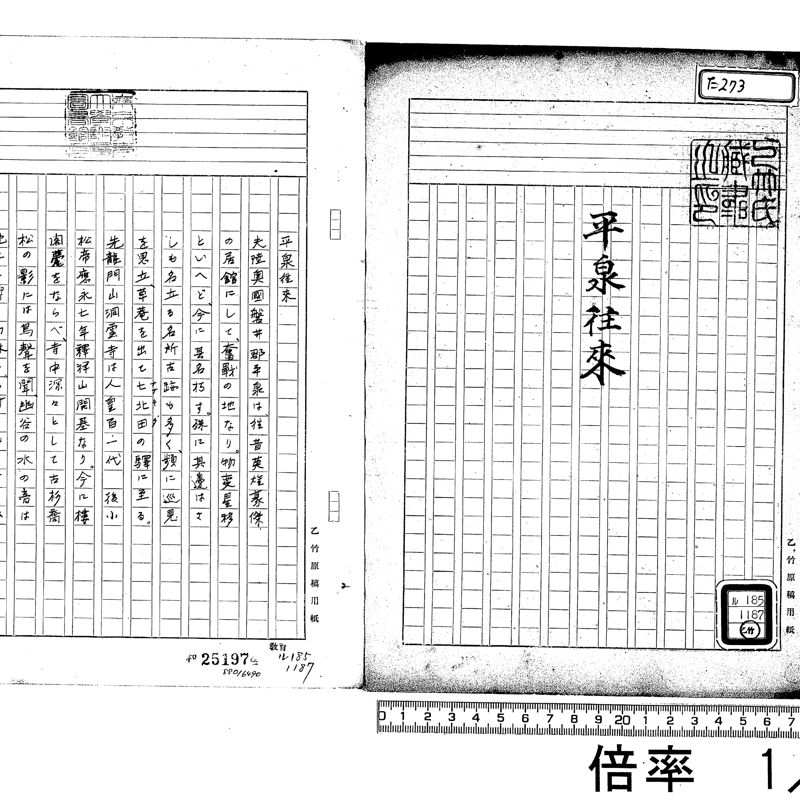 た273
乙竹氏
藏書
之印
平泉往來
乙竹原稿用紙
ル 185
1187
乙竹
平泉往來
夫陸奥國磐井郡平泉は、往昔英雄豪傑
の居館にして、奮戰の地なり。物変星移
といへど、今に其名朽ず。殊に其邊はさ
しも名立る名所古跡も多く、頻に巡見
を思立、草菴を出て七北田の驛に至る。
先龍門山洞雲寺は人皇百一代 後小
松帝應永七年釋祥山開基なり。今に樓
閣甍をならべ、寺中深々として古杉喬
松の影には鳥聲を聞、幽谷の水の音は
乙竹原稿用紙
和 25197
教育
ル185
1187
880/6490
0 1 2 3 4 5 6 7 8 9 20 1 2 3 4 5 6 7
倍率 1/